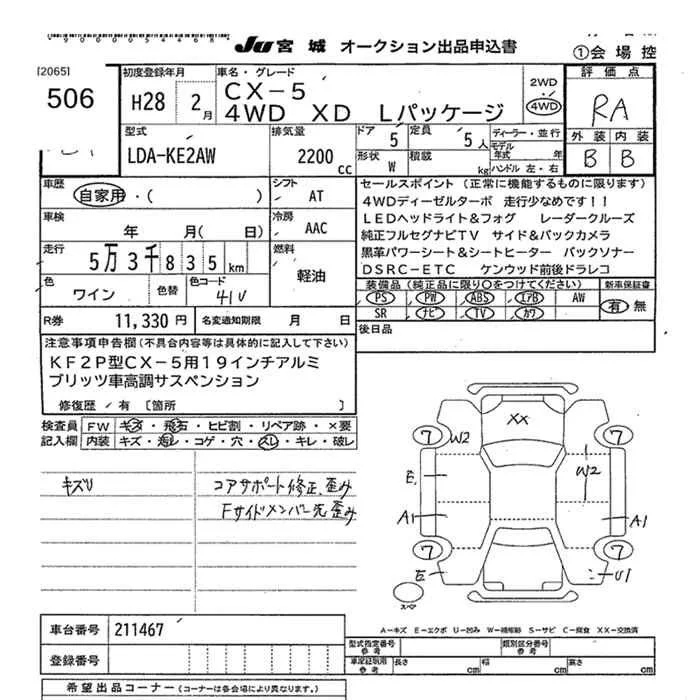 JU 宮城 オークション出品申込書
①会場控
[2065]
506
初度登録年月
H28 2月
車名・グレード
CX-5
4WD XD Lパッケージ
2WD
4WD
評価点
RA
外装 内装
B B
型式
LDA-KE2AW
排気量
2200 cc
ドア 5
定員 5人
形状 W
積載 kg
ディーラー・並行
モデル年式 年
ハンドル 左・右
車歴
自家用・( )
シフト
AT
車検
年 月( 日)
冷房
AAC
走行
5万3千835km
燃料
軽油
色
ワイン
色替
色コード
41V
R券 11,330円
名変通知期限 月 日
セールスポイント (正常に機能するものに限ります)
4WDディーゼルターボ 走行少なめです!!
LEDヘッドライト&フォグ レーダークルーズ
純正フルセグナビTV サイド&バックカメラ
黒革パワーシート&シートヒーター バックソナー
DSRC-ETC ケンウッド前後ドラレコ
装備品 (純正品に限り○をつけてください)
新車保証書
PS PW ABS エアB AW
SR ナビ TV カワ
有 無
後日品
注意事項申告欄 (不具合内容等は具体的に記入して下さい)
KF2P型CX-5用19インチアルミ
ブリッツ車高調サスペンション
修復歴 / 有 [箇所 ]
検査員記入欄
FW キズ・飛石・ヒビ割・リペア跡・×要
内装 キズ・汚レ・コゲ・穴・スレ・キレ・破レ
キズリ
コアサポート修正、歪み
Fサイドメンバー先歪み
XX
7 W2 7
W2
E
A1 A1
7 7
E U1
スペア
A-キズ E-エクボ U-凹み W-補修跡 S-サビ C-腐食 XX-交換済
車台番号 211467
登録番号
型式指定番号 参考
類別区分番号 参考
車庫証明用 参考
長さ cm 幅 cm 高さ cm
希望出品コーナー (コーナーは各会場により異なります。)